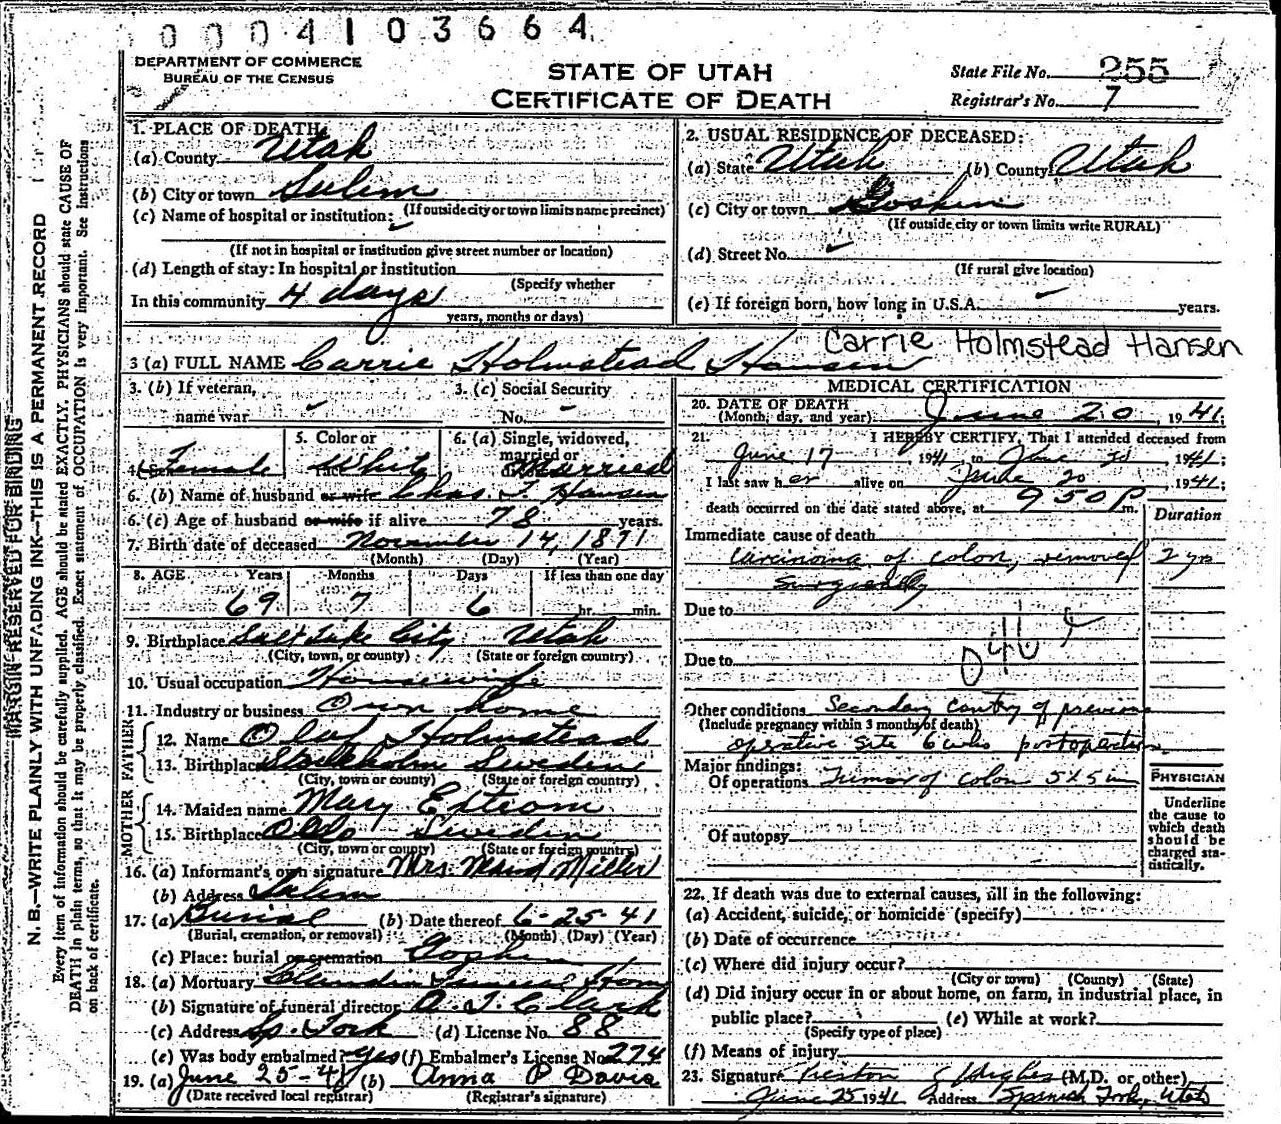 0004103664
DEPARTMENT OF COMMERCE
BUREAU OF THE CENSUS
STATE OF UTAH
CERTIFICATE OF DEATH
State File No. 255
Registrar's No. 7
MARGIN RESERVED FOR BINDING
N. B.—WRITE PLAINLY WITH UNFADING INK—THIS IS A PERMANENT RECORD
Every item of information should be carefully supplied. AGE should be stated EXACTLY. PHYSICIANS should state CAUSE OF
DEATH in plain terms, so that it may be properly classified. Exact statement of OCCUPATION is very important. See Instructions
on back of certificate.
1. PLACE OF DEATH:
(a) County Utah
(b) City or town Salem
(If outside city or town limits name precinct)
(c) Name of hospital or institution:
(If not in hospital or institution give street number or location)
(d) Length of stay: In hospital or institution
(Specify whether
In this community 4 days
years, months or days)
2. USUAL RESIDENCE OF DECEASED:
(a) State Utah (b) County Utah
(c) City or town Goshen
(If outside city or town limits write RURAL)
(d) Street No.
(If rural give location)
(e) If foreign born, how long in U.S.A. years.
3 (a) FULL NAME Carrie Holmstead Hansen
Carrie Holmstead Hansen
3. (b) If veteran,
name war
3. (c) Social Security
No. -
4. Sex Female
5. Color or
race White
6. (a) Single, widowed,
married or
Married
6. (b) Name of husband or wife Chas. T. Hansen
6. (c) Age of husband or wife if alive 78 years.
7. Birth date of deceased November 14, 1871
(Month) (Day) (Year)
8. AGE Years Months Days If less than one day
69 7 6 hr. min.
9. Birthplace Salt Lake City Utah
(City, town, or county) (State or foreign country)
10. Usual occupation Housewife
11. Industry or business Own home
FATHER
12. Name Olaf Holmstead
13. Birthplace Stockholm Sweden
(City, town or county) (State or foreign country)
MOTHER
14. Maiden name Mary
15. Birthplace Sweden
(City, town or county) (State or foreign country)
16. (a) Informant's own signature Mrs. Maud Miller
(b) Address Salem
17. (a) Burial (b) Date thereof 6-25-41
(Burial, cremation, or removal) (Month) (Day) (Year)
(c) Place: burial or cremation Goshen
18. (a) Mortuary Home
(b) Signature of funeral director A. J. Clark
(c) Address Sp. Fork (d) License No. 88
(e) Was body embalmed? yes (f) Embalmer's License No. 274
19. (a) June 25-41 (b) Anna P Davis
(Date received local registrar) (Registrar's signature)
MEDICAL CERTIFICATION
20. DATE OF DEATH
(Month, day, and year) June 20, 1941
21. I HEREBY CERTIFY, That I attended deceased from
June 17, 1941, to June 20, 1941;
I last saw her alive on June 20, 1941;
death occurred on the date stated above, at 9 50 P m.
Duration
Immediate cause of death
Carcinoma of colon, removed 2 yrs
Surgically
Due to
046
Due to
Other conditions Secondary of previous
(Include pregnancy within 3 months of death)
operative site 6 wks
Major findings:
Of operations Tumor of colon 5x5
Of autopsy
PHYSICIAN
Underline
the cause to
which death
should be
charged sta-
tistically.
22. If death was due to external causes, fill in the following:
(a) Accident, suicide, or homicide (specify)
(b) Date of occurrence
(c) Where did injury occur?
(City or town) (County) (State)
(d) Did injury occur in or about home, on farm, in industrial place, in
public place? (e) While at work?
(Specify type of place)
(f) Means of injury
23. Signature Preston Hughes (M.D. or other)
June 25 1941 Address Spanish Fork, Utah